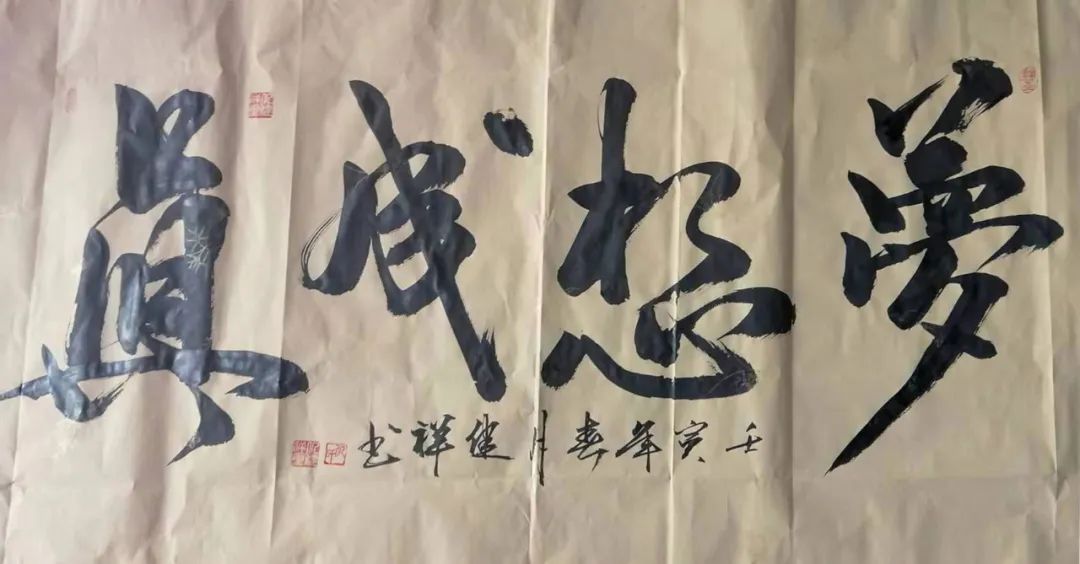 夢想成真
壬寅年春月健祥书